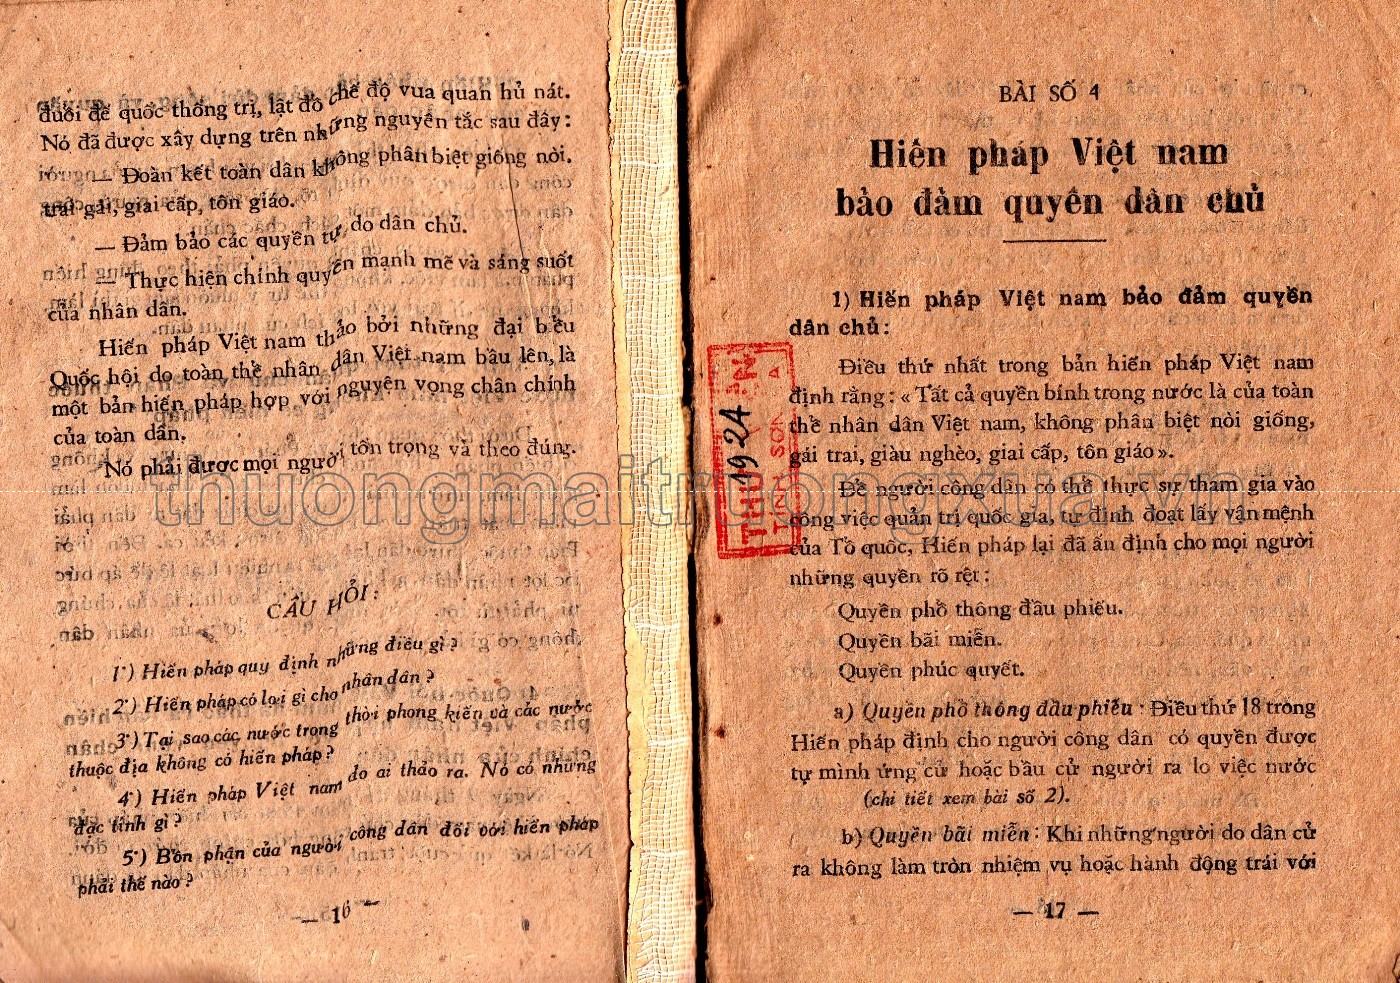 đuổi đế quốc thống trị, lật đổ chế độ vua quan hủ nát.
Nó đã được xây dựng trên những nguyên tắc sau đây:
— Đoàn kết toàn dân không phân biệt giống nòi,
trai gái, giai cấp, tôn giáo.
— Đảm bảo các quyền tự do dân chủ.
— Thực hiện chính quyền mạnh mẽ và sáng suốt
của nhân dân.
Hiến pháp Việt nam thảo bởi những đại biểu
Quốc hội do toàn thể nhân dân Việt nam bầu lên, là
một bản hiến pháp hợp với nguyện vọng chân chính
của toàn dân.
Nó phải được mọi người tôn trọng và theo đúng.
CÂU HỎI:
1·) Hiến pháp quy định những điều gì?
2·) Hiến pháp có lợi gì cho nhân dân?
3·) Tại sao các nước trong thời phong kiến và các nước
thuộc địa không có hiến pháp?
4·) Hiến pháp Việt nam do ai thảo ra. Nó có những
đặc tính gì?
5·) Bổn phận của người công dân đối với hiến pháp
phải thế nào?
— 16 —
BÀI SỐ 4
Hiến pháp Việt nam
bảo đảm quyền dân chủ
1) Hiến pháp Việt nam bảo đảm quyền
dân chủ:
Điều thứ nhất trong bản hiến pháp Việt nam
định rằng: « Tất cả quyền bính trong nước là của toàn
thể nhân dân Việt nam, không phân biệt nòi giống,
gái trai, giàu nghèo, giai cấp, tôn giáo ».
Để người công dân có thể thực sự tham gia vào
công việc quản trị quốc gia, tự định đoạt lấy vận mệnh
của Tổ quốc, Hiến pháp lại đã ấn định cho mọi người
những quyền rõ rệt:
Quyền phổ thông đầu phiếu.
Quyền bãi miễn.
Quyền phúc quyết.
a) Quyền phổ thông đầu phiếu · Điều thứ 18 trong
Hiến pháp định cho người công dân có quyền được
tự mình ứng cử hoặc bầu cử người ra lo việc nước
(chi tiết xem bài số 2).
b) Quyền bãi miễn: Khi những người do dân cử
ra không làm tròn nhiệm vụ hoặc hành động trái với
— 17 —
THƯ
TỈNH SƠN
1924
thuongmaitruongxua.vn